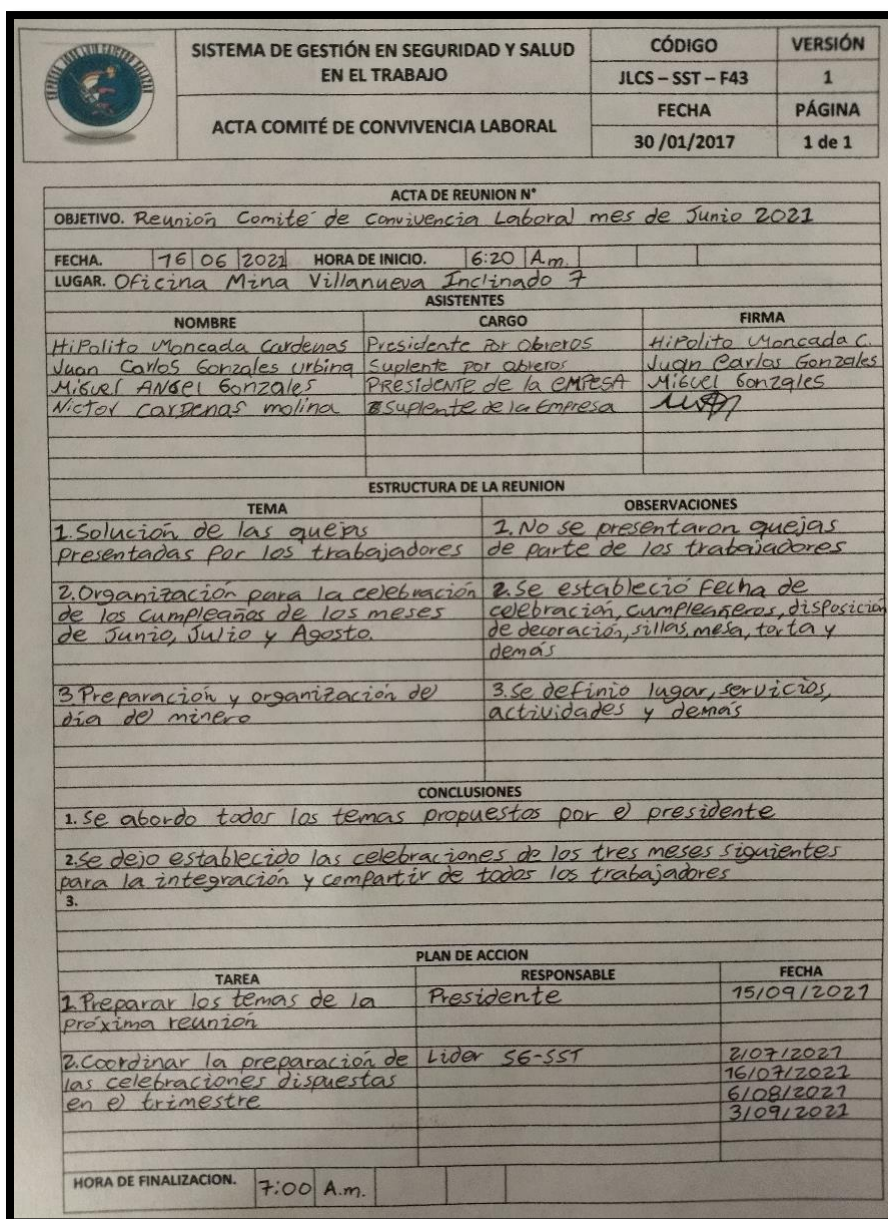 SISTEMA DE GESTIÓN EN SEGURIDAD Y SALUD
EN EL TRABAJO
CÓDIGO
VERSIÓN
JLCS – SST – F43
1
ACTA COMITÉ DE CONVIVENCIA LABORAL
FECHA
PÁGINA
30 /01/2017
1 de 1
ACTA DE REUNION N°
OBJETIVO. Reunión Comité de convivencia Laboral mes de Junio 2021
FECHA. 16 06 2021 HORA DE INICIO. 6:20 A.m.
LUGAR. Oficina Mina Villanueva Inclinado 7
ASISTENTES
NOMBRE CARGO FIRMA
Hipolito Moncada Cardenas Presidente Por Obreros Hipolito Moncada C.
Juan Carlos Gonzales Urbina Suplente por obreros Juan Carlos Gonzales
Miguel Angel Gonzales Presidente de la empesa Miguel Gonzales
Nictor cardenas molina Suplente de la Empresa
ESTRUCTURA DE LA REUNION
TEMA OBSERVACIONES
1. Solución de las quejas 1. No se presentaron quejas
presentadas por los trabajadores de parte de los trabajadores
2. Organización para la celebración 2. Se estableció fecha de
de los cumpleaños de los meses celebración, cumpleañeros, disposición
de Junio, Julio y Agosto. de decoración, sillas, mesa, torta y
demás
3. Preparación y organización de 3. se definio lugar, servicios,
día del minero actividades y demás
CONCLUSIONES
1. Se abordo todos los temas propuestos por el presidente
2. Se dejo establecido las celebraciones de los tres meses siguientes
para la integración y compartir de todos los trabajadores
3.
PLAN DE ACCION
TAREA RESPONSABLE FECHA
1. Preparar los temas de la Presidente 15/09/2021
próxima reunión
2. Coordinar la preparación de Lider SG-SST 2/07/2021
las celebraciones dispuestas 16/07/2021
en el trimestre 6/08/2021
3/09/2021
HORA DE FINALIZACION. 7:00 A.m.